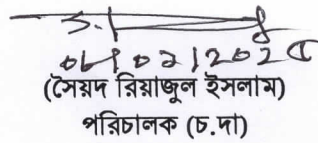 ০৮/০২/২০২৫
(সৈয়দ রিয়াজুল ইসলাম)
পরিচালক (চ.দা)